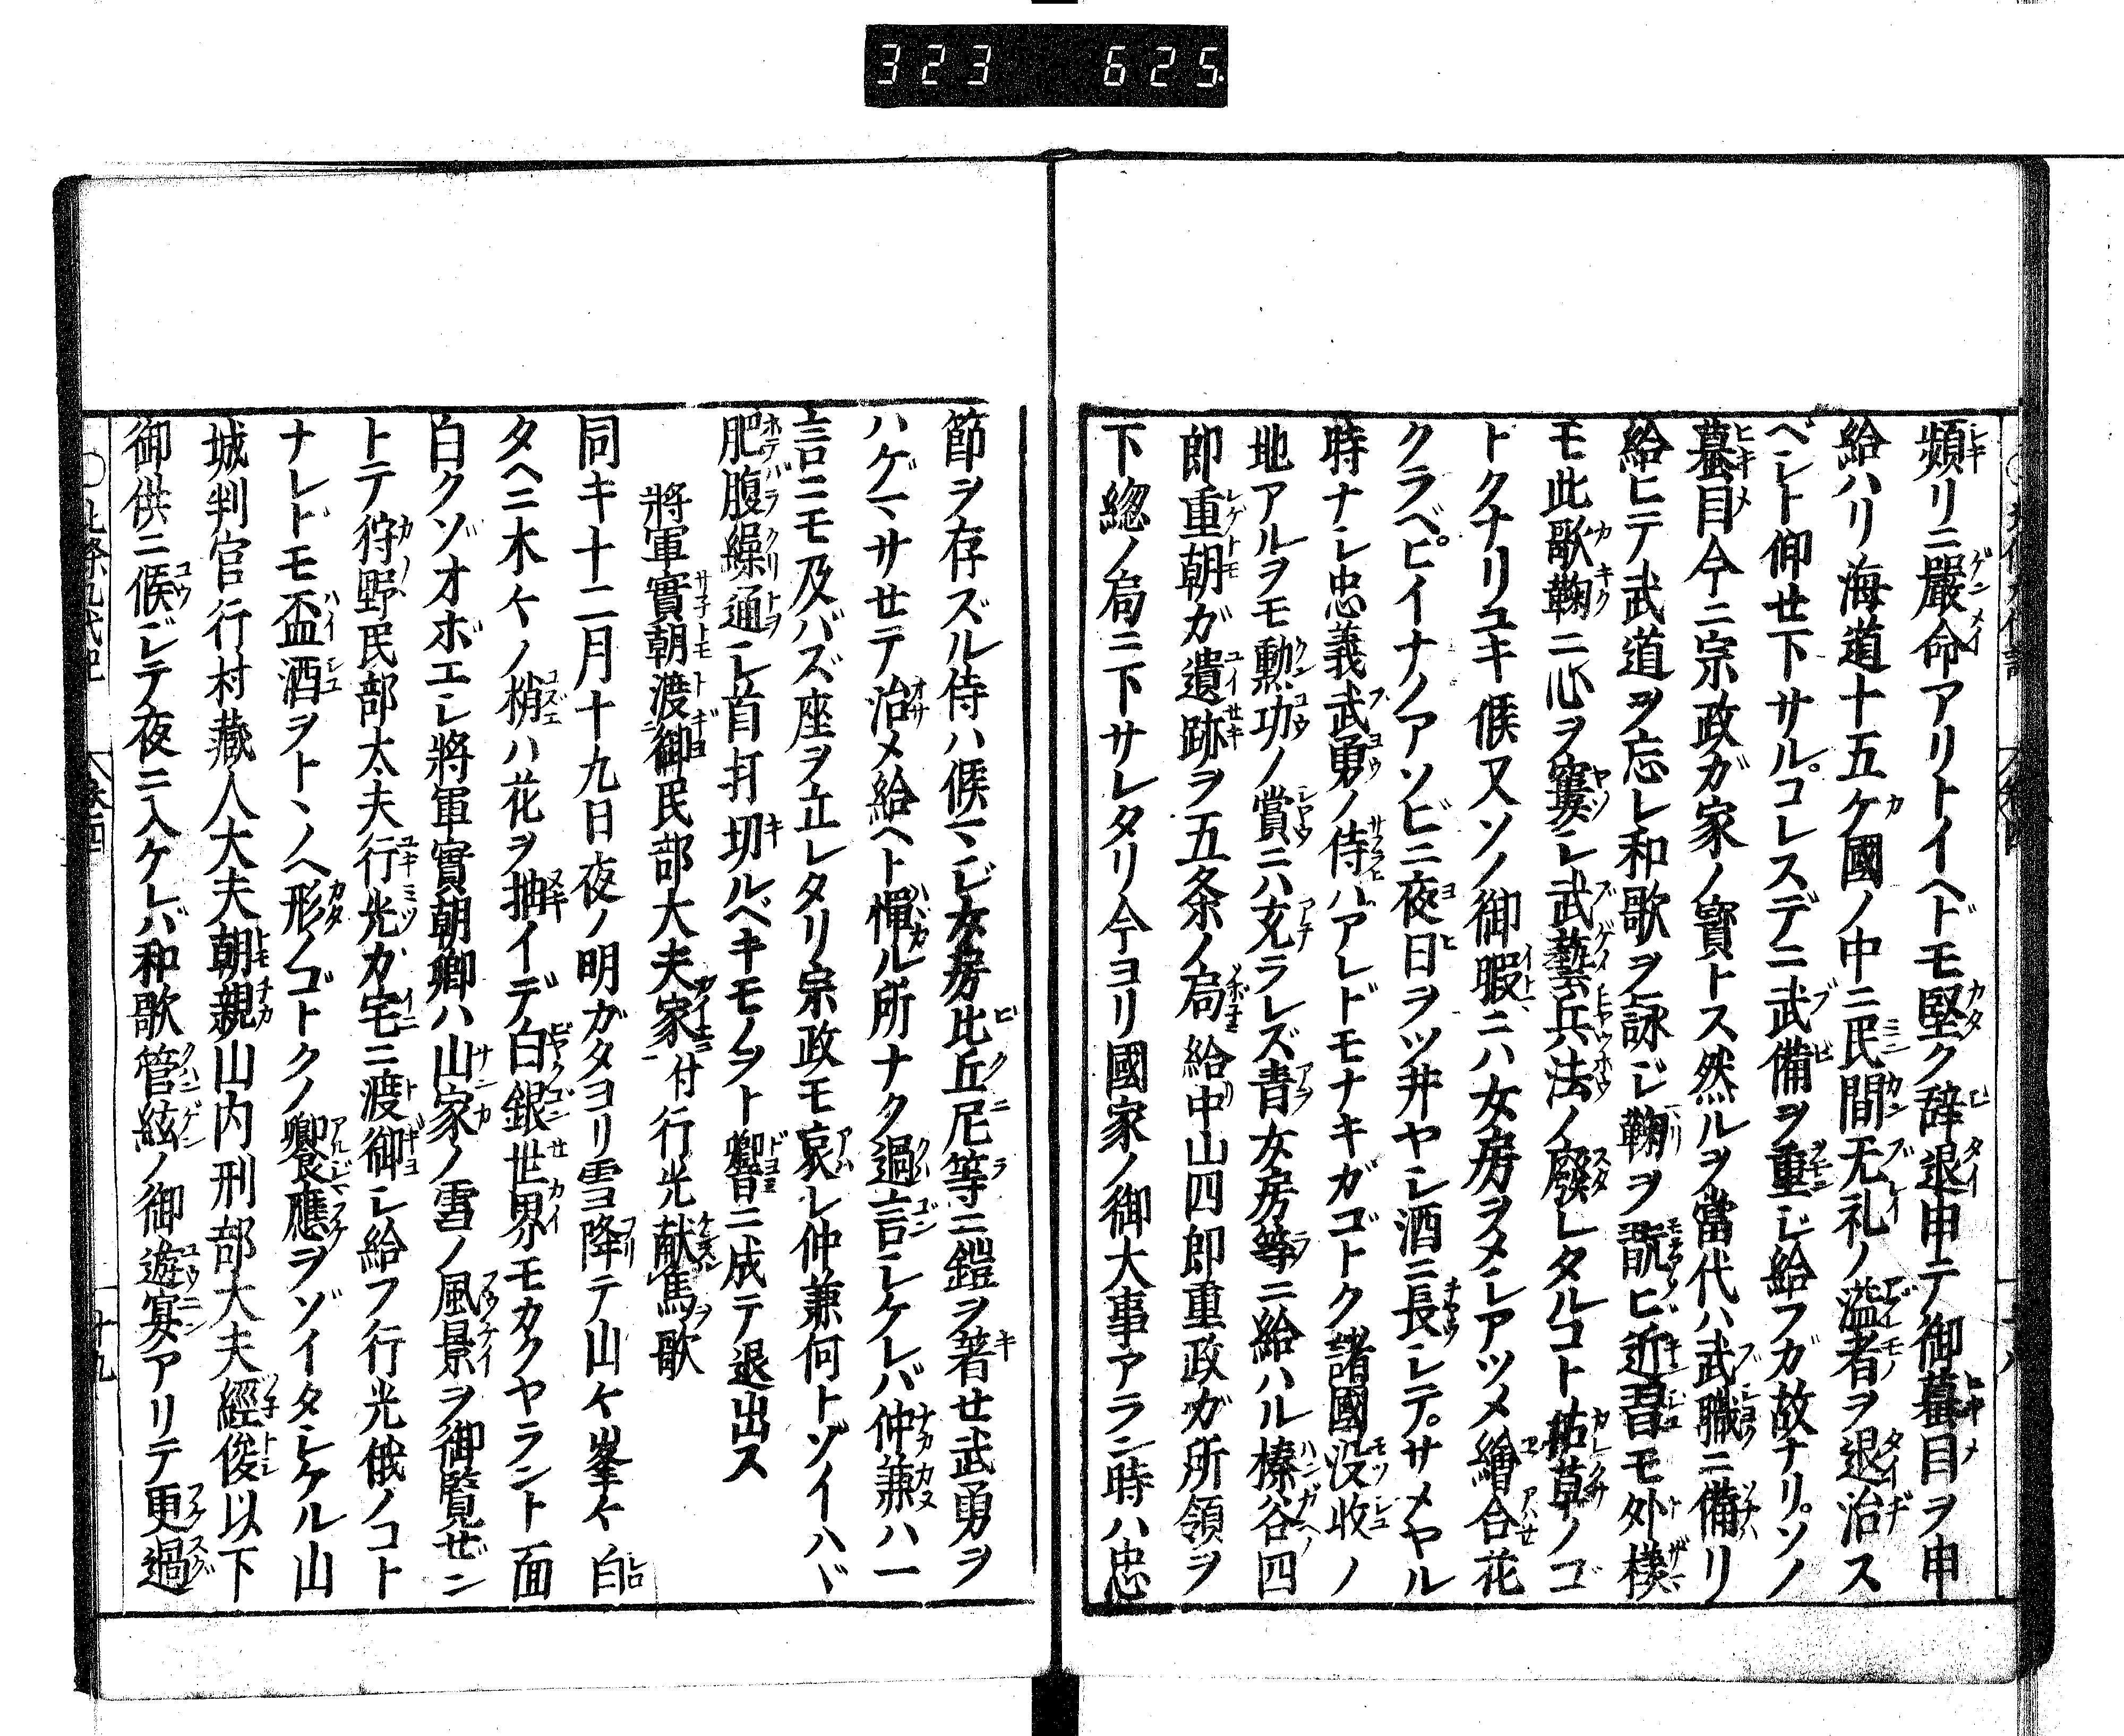 323 625
頻リニ嚴命アリトイヘドモ堅ク辞退申テ御蟇目ヲ申
給ハリ海道十五ケ國ノ中ニ民間无礼ノ溢者ヲ退治ス
ベシト仰せ下サル。コレスデニ武備ヲ重ジ給フガ故ナリ。ソノ
蟇目今ニ宗政ガ家ノ寳トス然ルヲ當代ハ武職ニ備リ
給ヒテ武道ヲ忘レ和歌ヲ詠ジ鞠ヲ翫ヒ近習モ外様
モ此歌鞠ニ心ヲ窶シ武藝兵法ノ廢レタルコト枯草ノゴ
トクナリユキ候又ソノ御暇ニハ女房ヲメシアツメ繪合花
クラベ。ビイナノアソビニ夜日ヲツ井ヤシ酒ニ長シテ。サメヤル
時ナシ忠義武勇ノ侍ハアレドモナキガゴトク諸國没收ノ
地アルヲモ勲功ノ賞ニハ充ラレズ青女房等ニ給ハル榛谷四
郎重朝ガ遺跡ヲ五条ノ局給中山四郎重政ガ所領ヲ
下総ノ局ニ下サレタリ今ヨリ國家ノ御大事アラン時ハ忠
節ヲ存ズル侍ハ候マジ女房比丘尼等ニ鎧ヲ著せ武勇ヲ
ハゲマサせテ治メ給ヘト憚ル所ナク過言シケレバ仲兼ハ一
言ニモ及バズ座ヲ立レタリ宗政モ哀レ仲兼何トゾイハヾ
肥腹繰通シ首打切ルベキモノヲト響ニ成テ退出ス
將軍實朝渡御民部大夫家付行光献馬歌
同キ十二月十九日夜ノ明ガタヨリ雪降テ山々峯々白
タヘニ木々ノ梢ハ花ヲ抽イデ白銀世界モカクヤラント面
白クゾオボエシ將軍實朝卿ハ山家ノ雪ノ風景ヲ御覧ぜン
トテ狩野民部太夫行光カ宅ニ渡御シ給フ行光俄ノコト
ナレドモ盃酒ヲトヽノヘ形ノゴトクノ饗應ヲゾイタシケル山
城判官行村蔵人大夫朝親山内刑部大夫經俊以下
御供ニ候ジテ夜ニ入ケレバ和歌管絃ノ御遊宴アリテ更過